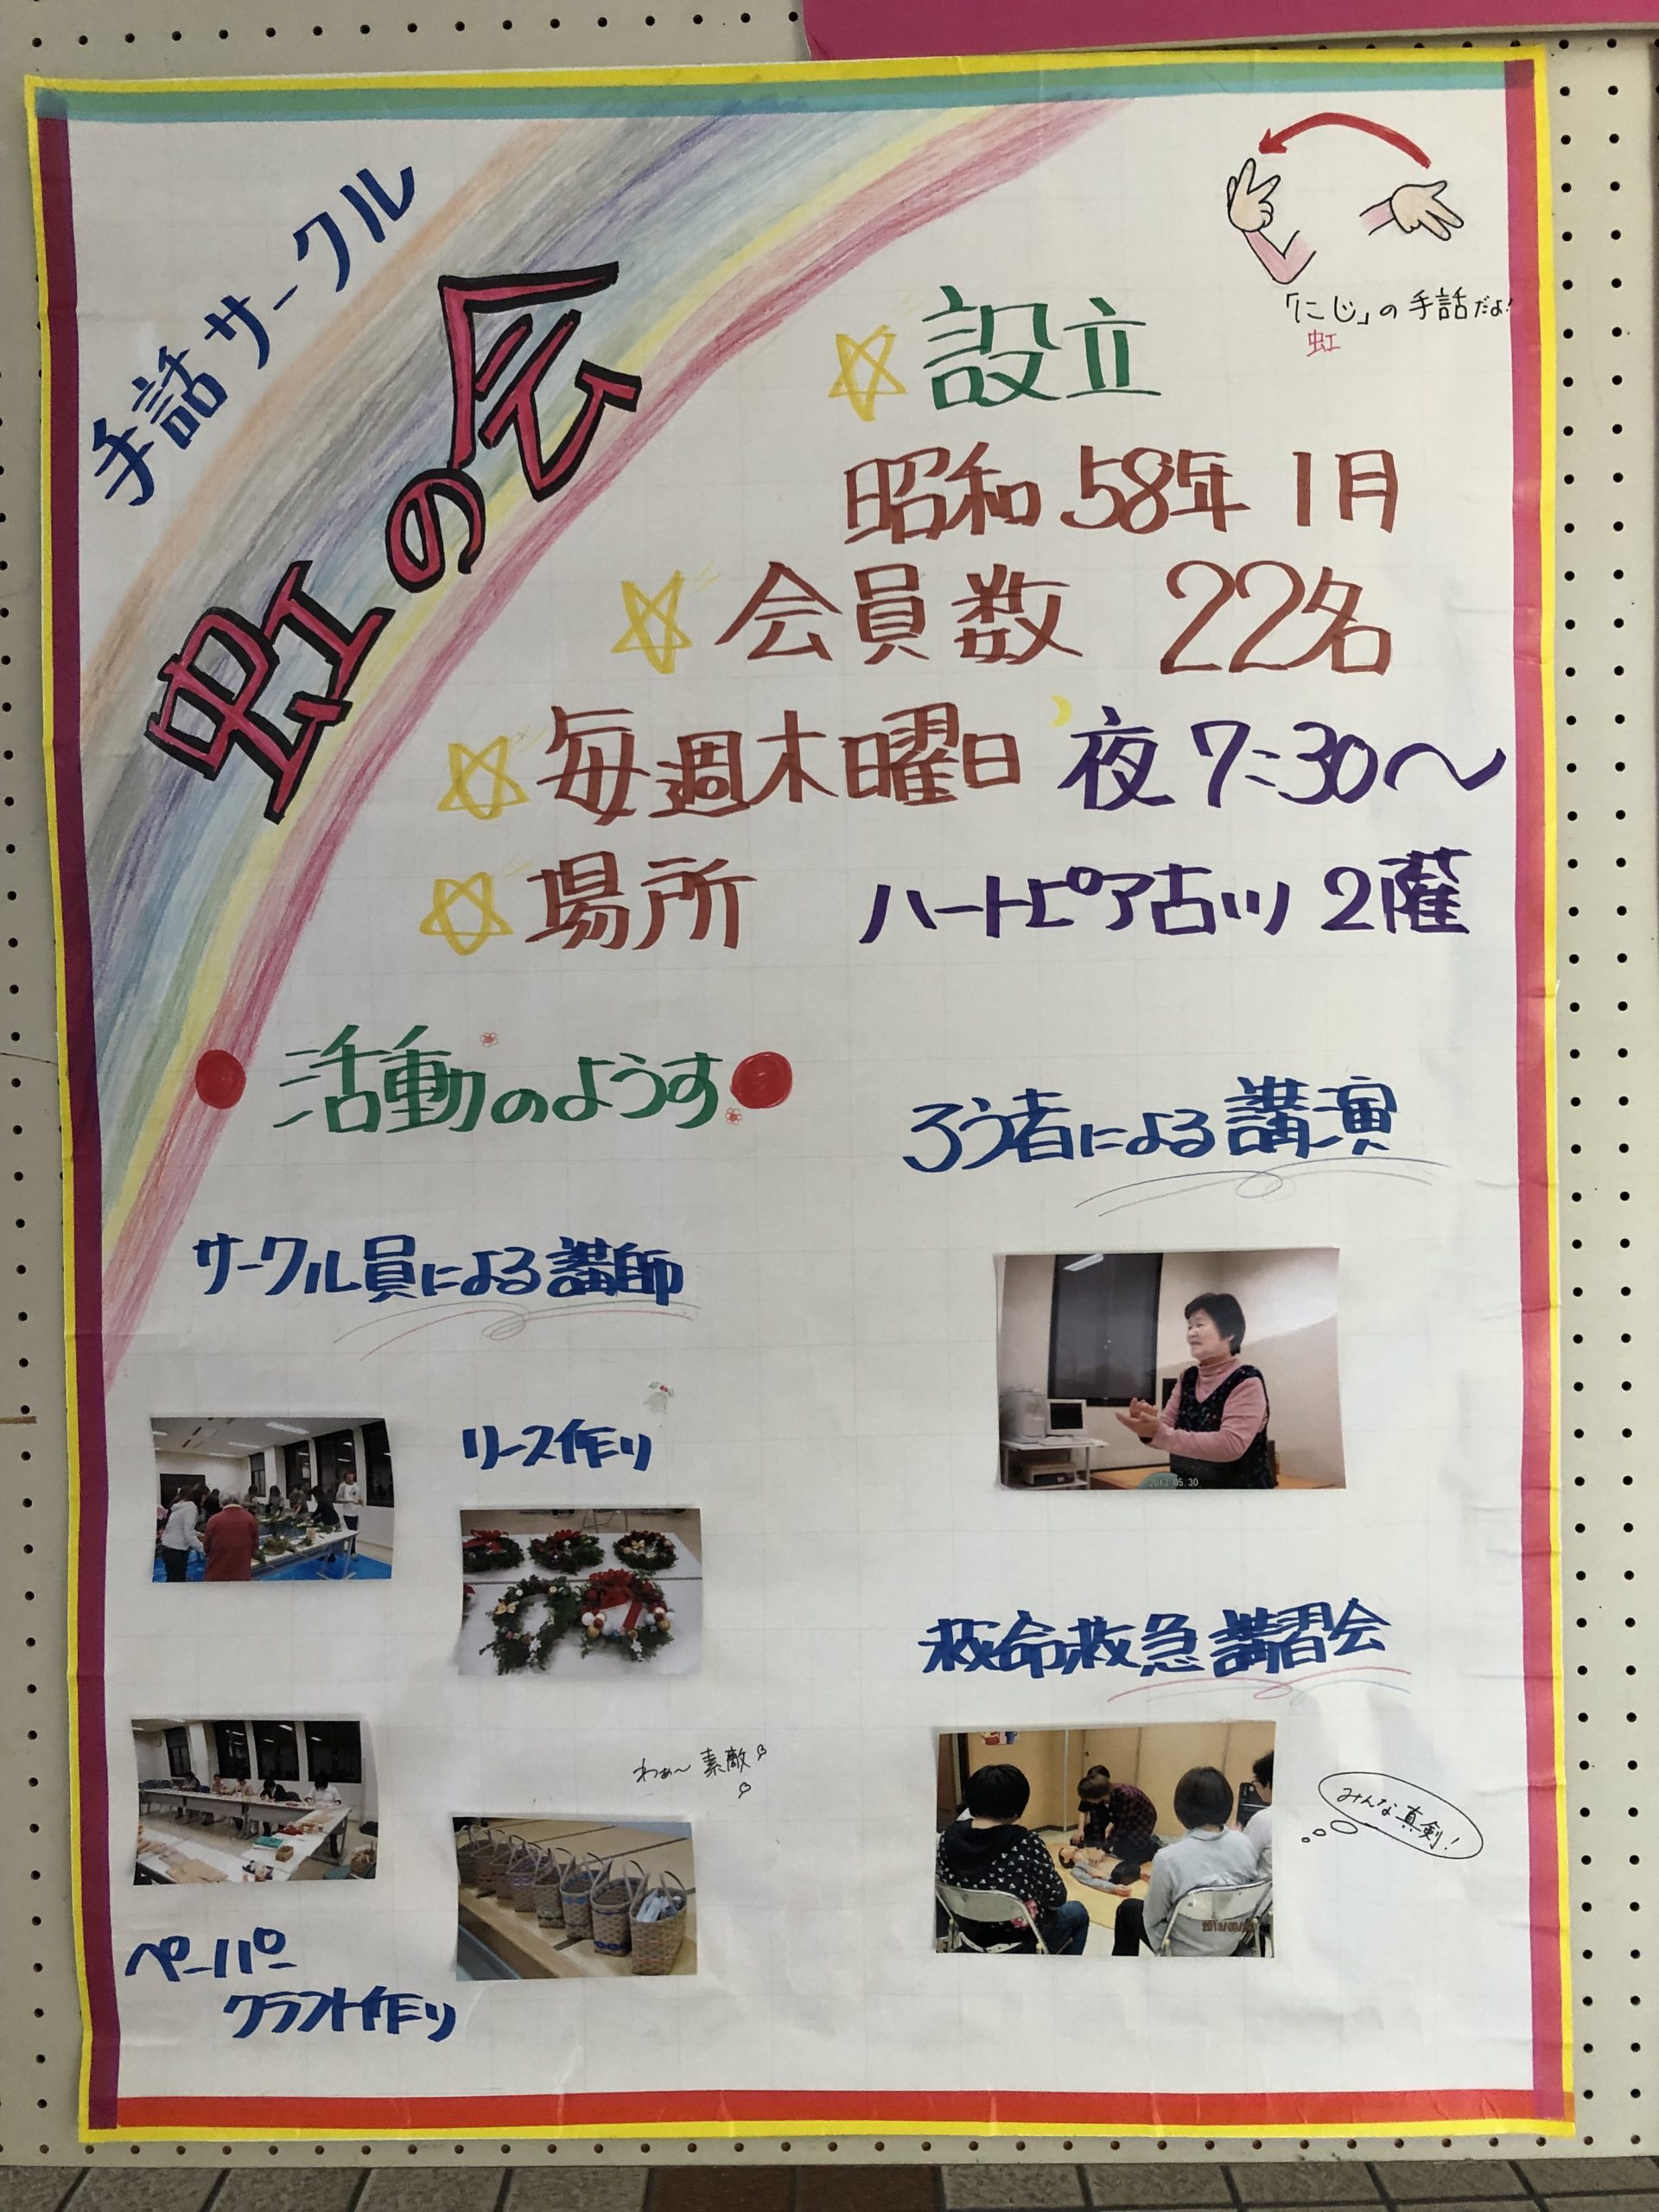 手話サークル
虹の会
「にじ」の手話だよ!
虹
設立
昭和58年 1月
会員数 22名
毎週木曜日 夜7:30〜
場所 ハートピア古川 2階
活動のようす
ろう者による講演
サークル員による講師
リース作り
2013 05 30
救命救急講習会
わぁ〜素敵
みんな真剣!
ペーパー
クラフト作り